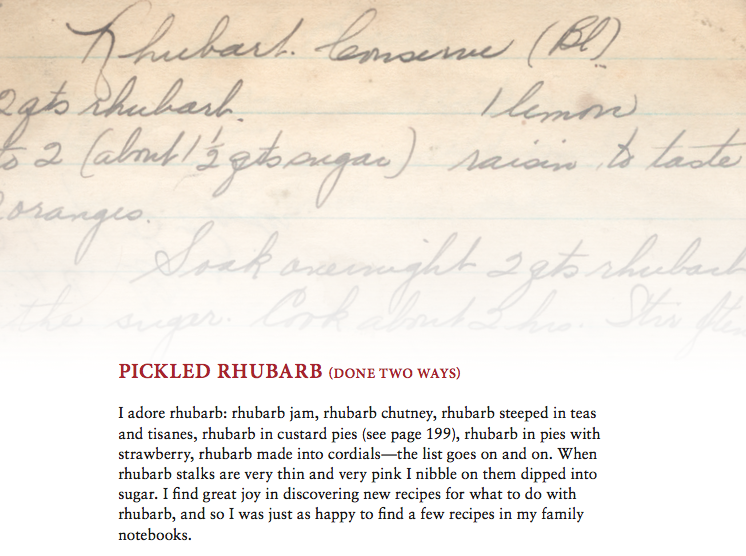 Rhubarb. Conserve (Bl)
2 qts rhubarb. 1 lemon
to 2 (about 1 1/2 qts sugar) raisin to taste
oranges.
Soak overnight 2 qts rhubarb
the sugar. Cook about 2 hrs. Stir often
PICKLED RHUBARB (DONE TWO WAYS)
I adore rhubarb: rhubarb jam, rhubarb chutney, rhubarb steeped in teas
and tisanes, rhubarb in custard pies (see page 199), rhubarb in pies with
strawberry, rhubarb made into cordials—the list goes on and on. When
rhubarb stalks are very thin and very pink I nibble on them dipped into
sugar. I find great joy in discovering new recipes for what to do with
rhubarb, and so I was just as happy to find a few recipes in my family
notebooks.